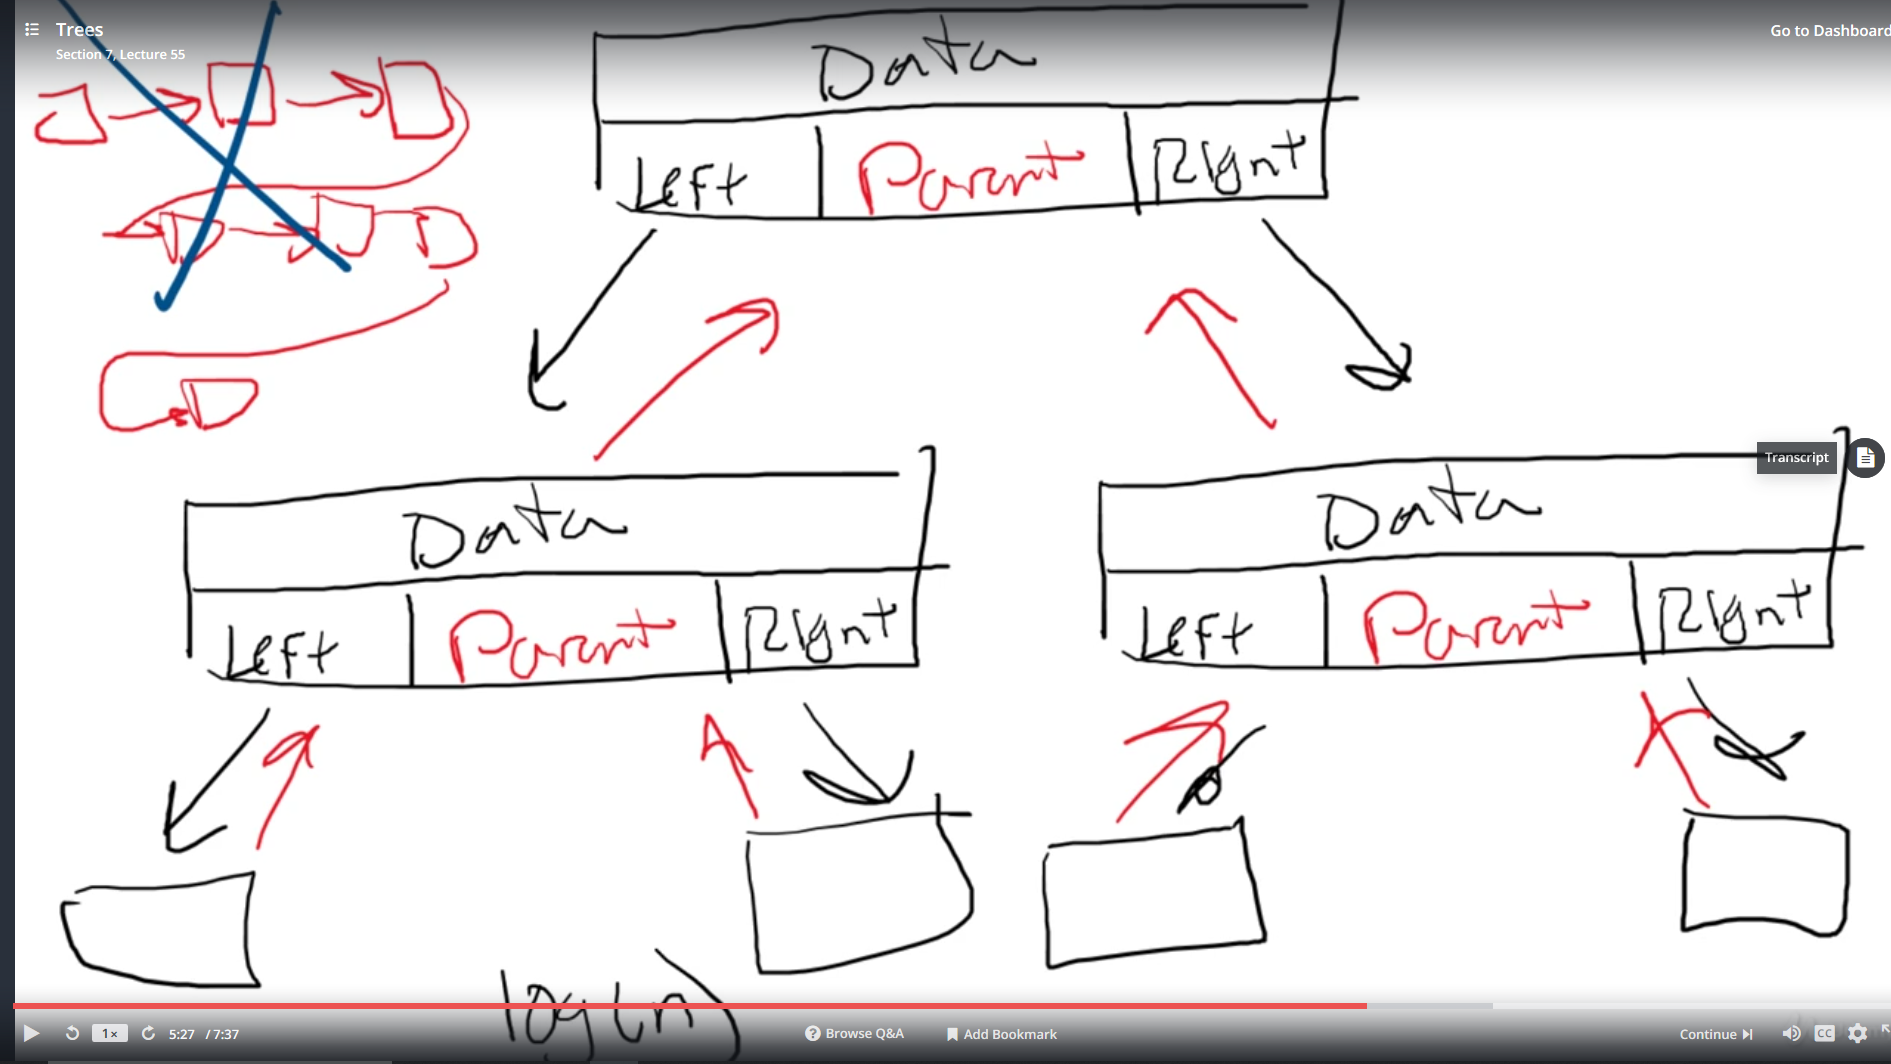 Trees
Section 7, Lecture 55
Go to Dashboard
Data
Left Parent Right
Transcript
Data
Left Parent Right
Data
Left Parent Right
log(n)
1× 5:27 / 7:37 Browse Q&A Add Bookmark Continue CC